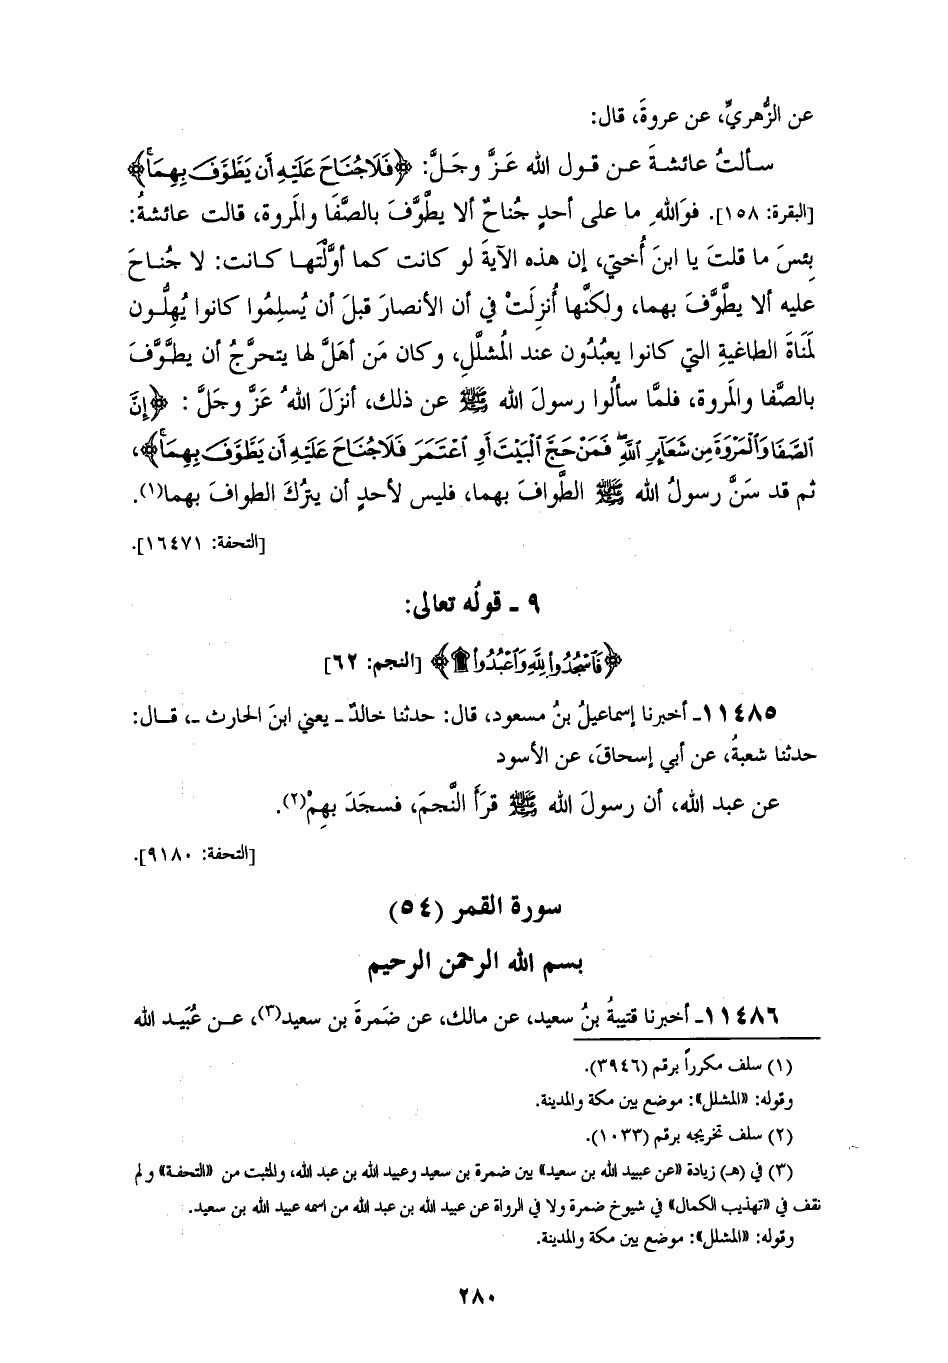 عن الزُّهريِّ، عن عروةَ، قال:
سألتُ عائشةَ عن قول الله عَزَّ وجَلَّ: ﴿فَلَا جُنَاحَ عَلَيْهِ أَن يَطَّوَّفَ بِهِمَا﴾
[البقرة: ١٥٨]. فوَاللهِ ما على أحدٍ جُناحٌ ألا يطَّوَّفَ بالصَّفَا والمَروة، قالت عائشةُ:
بِئسَ ما قلتَ يا ابنَ أُختي، إن هذه الآيةَ لو كانت كما أوَّلْتَها كانت: لا جُناحَ
عليه ألا يطَّوَّفَ بهما، ولكنَّها أُنزِلَتْ في أن الأنصارَ قبلَ أن يُسلِمُوا كانوا يُهِلُّون
لَمَنَاةَ الطاغيةِ التي كانوا يعبُدُون عند المُشلَّلِ، وكان مَن أهَلَّ لها يتحرَّجُ أن يطَّوَّفَ
بالصَّفا والمَروة، فلمَّا سألُوا رسولَ الله ﷺ عن ذلك، أنزَلَ اللهُ عَزَّ وجَلَّ: ﴿إِنَّ
الصَّفَا وَالْمَرْوَةَ مِن شَعَآئِرِ اللَّهِ فَمَنْ حَجَّ الْبَيْتَ أَوِ اعْتَمَرَ فَلَا جُنَاحَ عَلَيْهِ أَن يَطَّوَّفَ بِهِمَا﴾،
ثم قد سَنَّ رسولُ الله ﷺ الطَّوافَ بهما، فليس لأحدٍ أن يترُكَ الطوافَ بهما(١).
[التحفة: ١٦٤٧١].
٩ ـ قولُه تعالى:
﴿فَاسْجُدُوا لِلَّهِ وَاعْبُدُوا ۩﴾ [النجم: ٦٢]
١١٤٨٥ـ أخبرنا إسماعيلُ بنُ مسعود، قال: حدثنا خالدٌ ـ يعني ابنَ الحارث ـ، قال:
حدثنا شعبةُ، عن أبي إسحاقَ، عن الأسود
عن عبد الله، أن رسولَ الله ﷺ قرَأَ النَّجمَ، فسجَدَ بهِمْ(٢).
[التحفة: ٩١٨٠].
سورة القمر (٥٤)
بسم الله الرحمن الرحيم
١١٤٨٦ـ أخبرنا قتيبةُ بنُ سعيد، عن مالك، عن ضَمرةَ بن سعيد(٣)، عن عُبَيد الله
(١) سلف مكرراً برقم (٣٩٤٦).
وقوله: «المشلل»: موضع بين مكة والمدينة.
(٢) سلف تخريجه برقم (١٠٣٣).
(٣) في (هـ) زيادة «عن عبيد الله بن سعيد» بين ضمرة بن سعيد وعبيد الله بن عبد الله، والمثبت من «التحفة» ولم
نقف في «تهذيب الكمال» في شيوخ ضمرة ولا في الرواة عن عبيد الله بن عبد الله من اسمه عبيد الله بن سعيد.
وقوله: «المشلل»: موضع بين مكة والمدينة.
٢٨٠